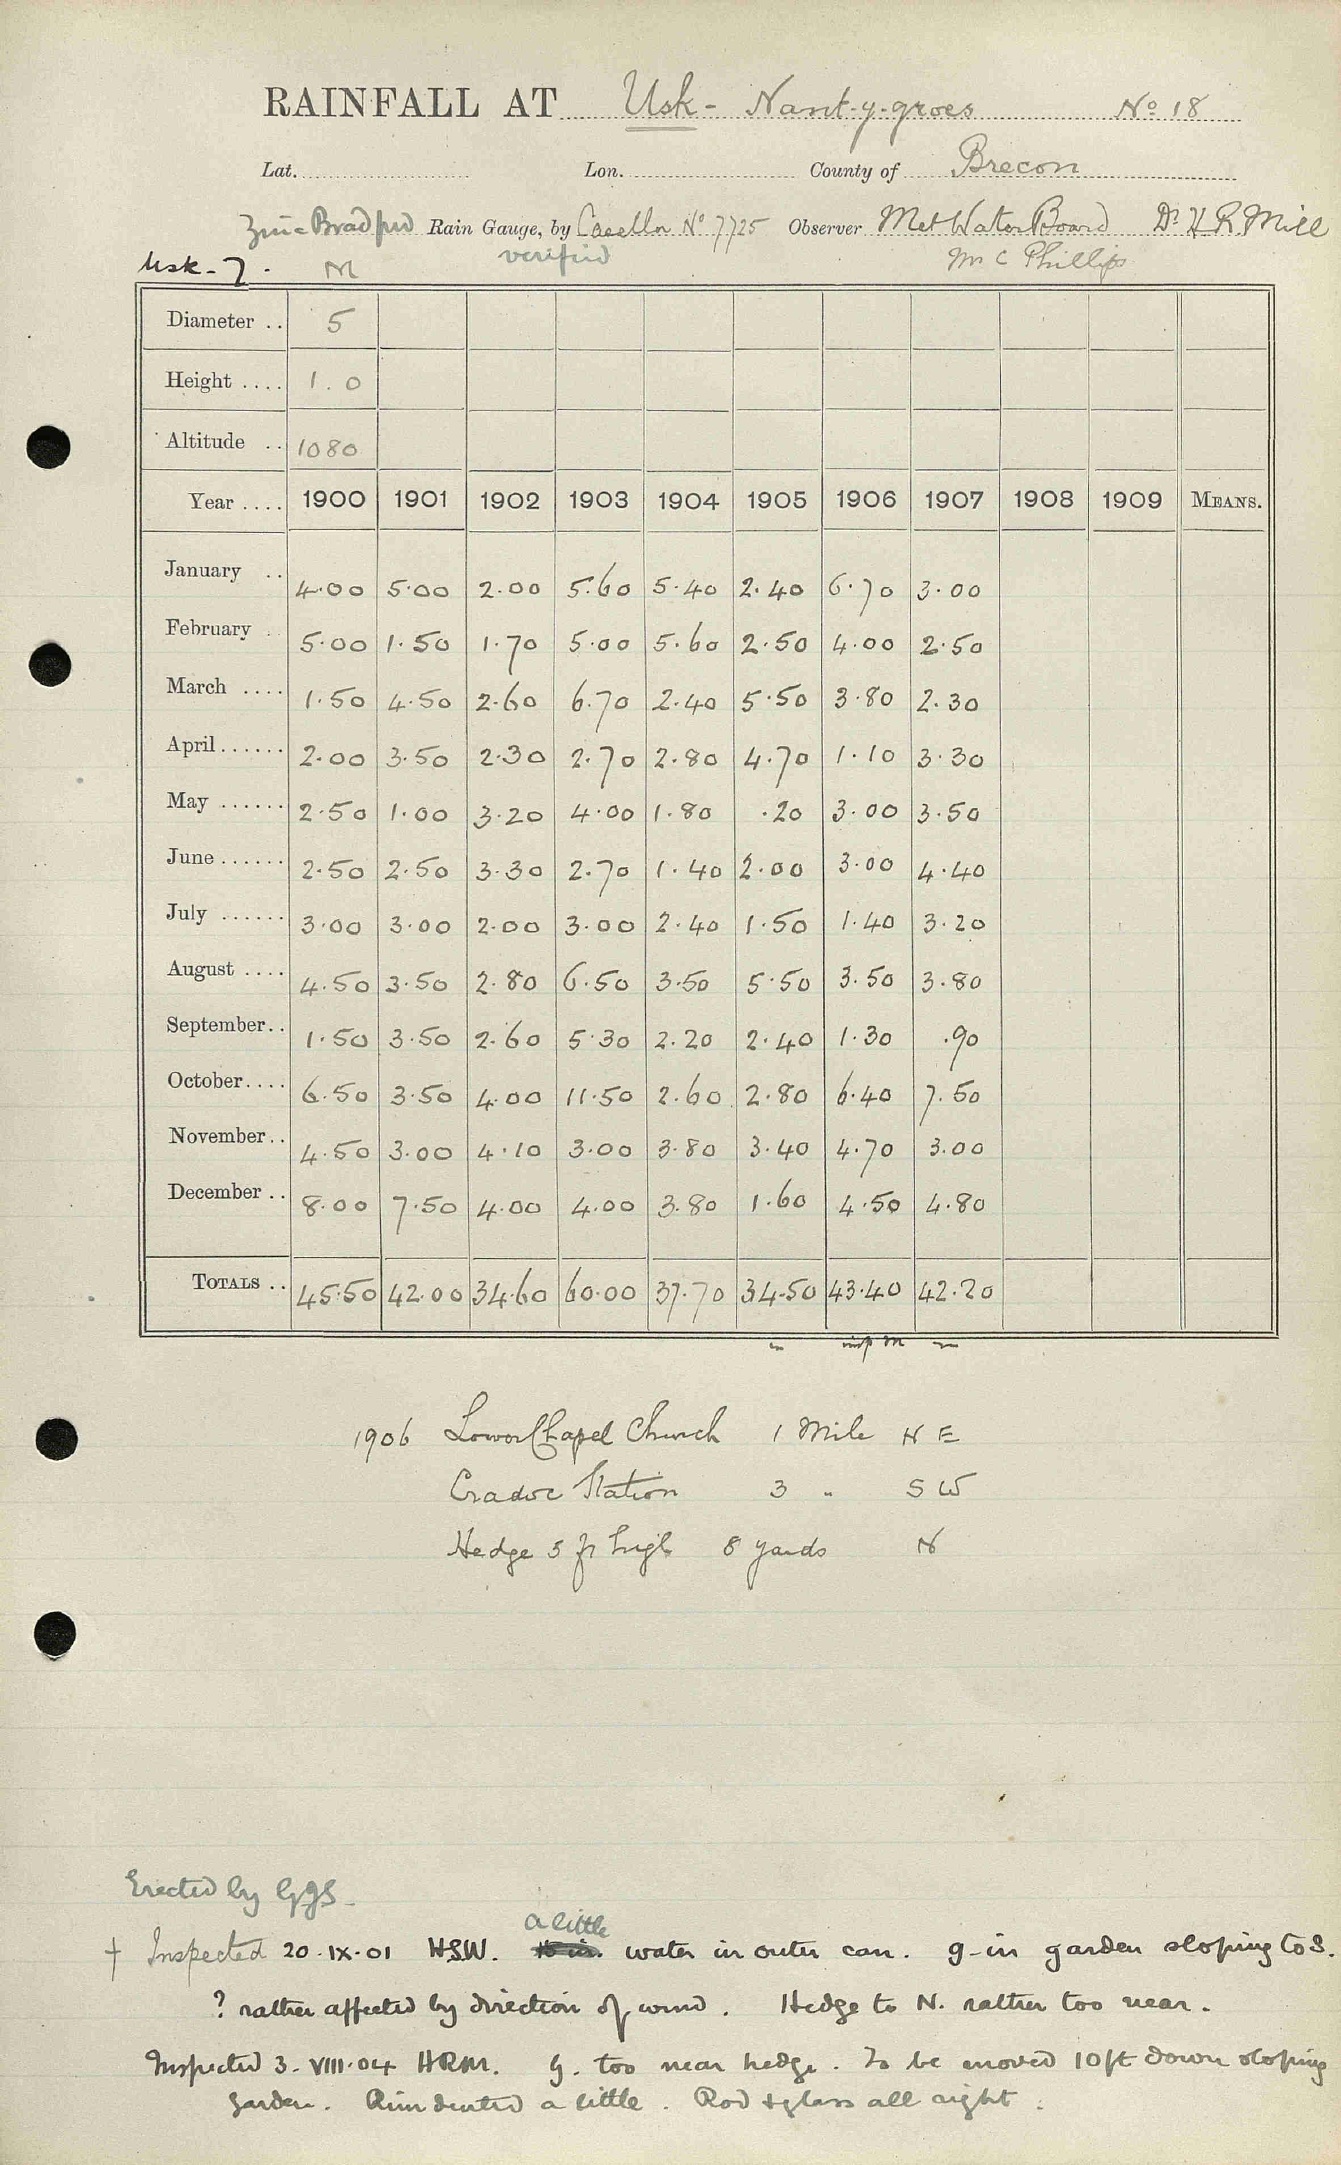 RAINFALL AT Usk - Nant-y-groes No 18
Lat. Lon. County of Brecon
Zinc Bradford Rain Gauge, by Casella No 7725 Observer Met Water Board Dr H R Mill
Usk - 7. M verified Mr C Phillips
Diameter .. 5
Height .... 1.0
Altitude .. 1080
Year .... 1900 1901 1902 1903 1904 1905 1906 1907 1908 1909 MEANS.
January .. 4.00 5.00 2.00 5.60 5.40 2.40 6.70 3.00
February .. 5.00 1.50 1.70 5.00 5.60 2.50 4.00 2.50
March .... 1.50 4.50 2.60 6.70 2.40 5.50 3.80 2.30
April ...... 2.00 3.50 2.30 2.70 2.80 4.70 1.10 3.30
May ...... 2.50 1.00 3.20 4.00 1.80 .20 3.00 3.50
June ...... 2.50 2.50 3.30 2.70 1.40 2.00 3.00 4.40
July ...... 3.00 3.00 2.00 3.00 2.40 1.50 1.40 3.20
August .... 4.50 3.50 2.80 6.50 3.50 5.50 3.50 3.80
September .. 1.50 3.50 2.60 5.30 2.20 2.40 1.30 .90
October .... 6.50 3.50 4.00 11.50 2.60 2.80 6.40 7.50
November .. 4.50 3.00 4.10 3.00 3.80 3.40 4.70 3.00
December .. 8.00 7.50 4.00 4.00 3.80 1.60 4.50 4.80
TOTALS .. 45.50 42.00 34.60 60.00 37.70 34.50 43.40 42.20
1906 Lower Chapel Church 1 Mile N E
Cradoc Station 3 " S W
Hedge 5 ft high 8 yards N
Erected by GJS
a little
† Inspected 20.IX.01 HSW. water in outer can. g. in garden sloping to S.
? rather affected by direction of wind. Hedge to N. rather too near.
Inspected 3.VIII.04 HRM. G. too near hedge. To be moved 10ft down sloping
garden. Rim dented a little. Rod & glass all right.